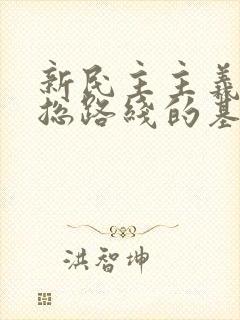 新民主主義
总路綫的基
洪智坤